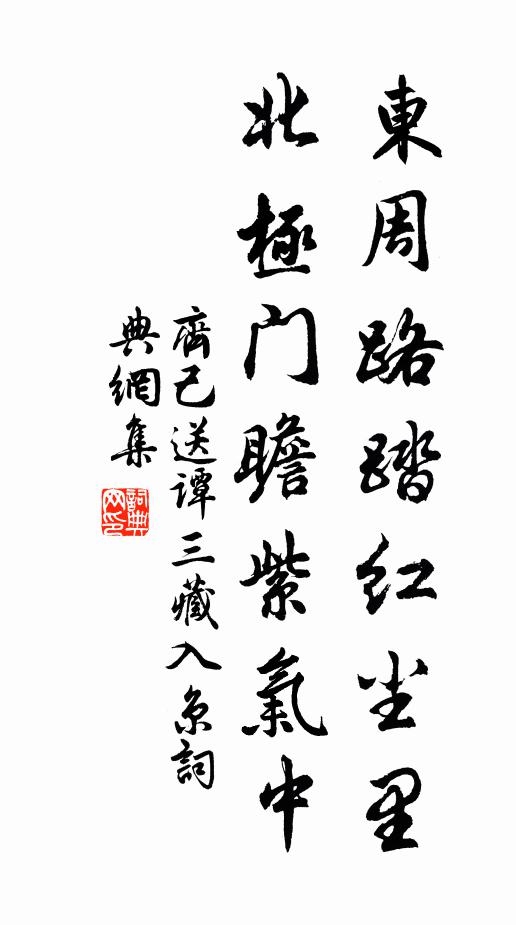 東周路踏紅尘里
北極門瞻紫氣中
齊己送谭三藏入京詞
典網集
詞典
网印